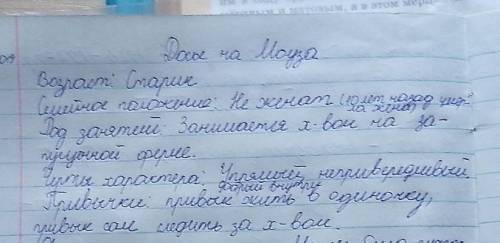 Досье на Моуза
Возраст: Старик
Семейное положение: Не женат (10 лет назад
за жены)
Род занятий: Занимается х-вом на за-
пущенной ферме.
Черты характера: Упрямый, непривередливый,
добрый внутри
Привычки: привык жить в одиночку,
привык сам следить за х-вом.